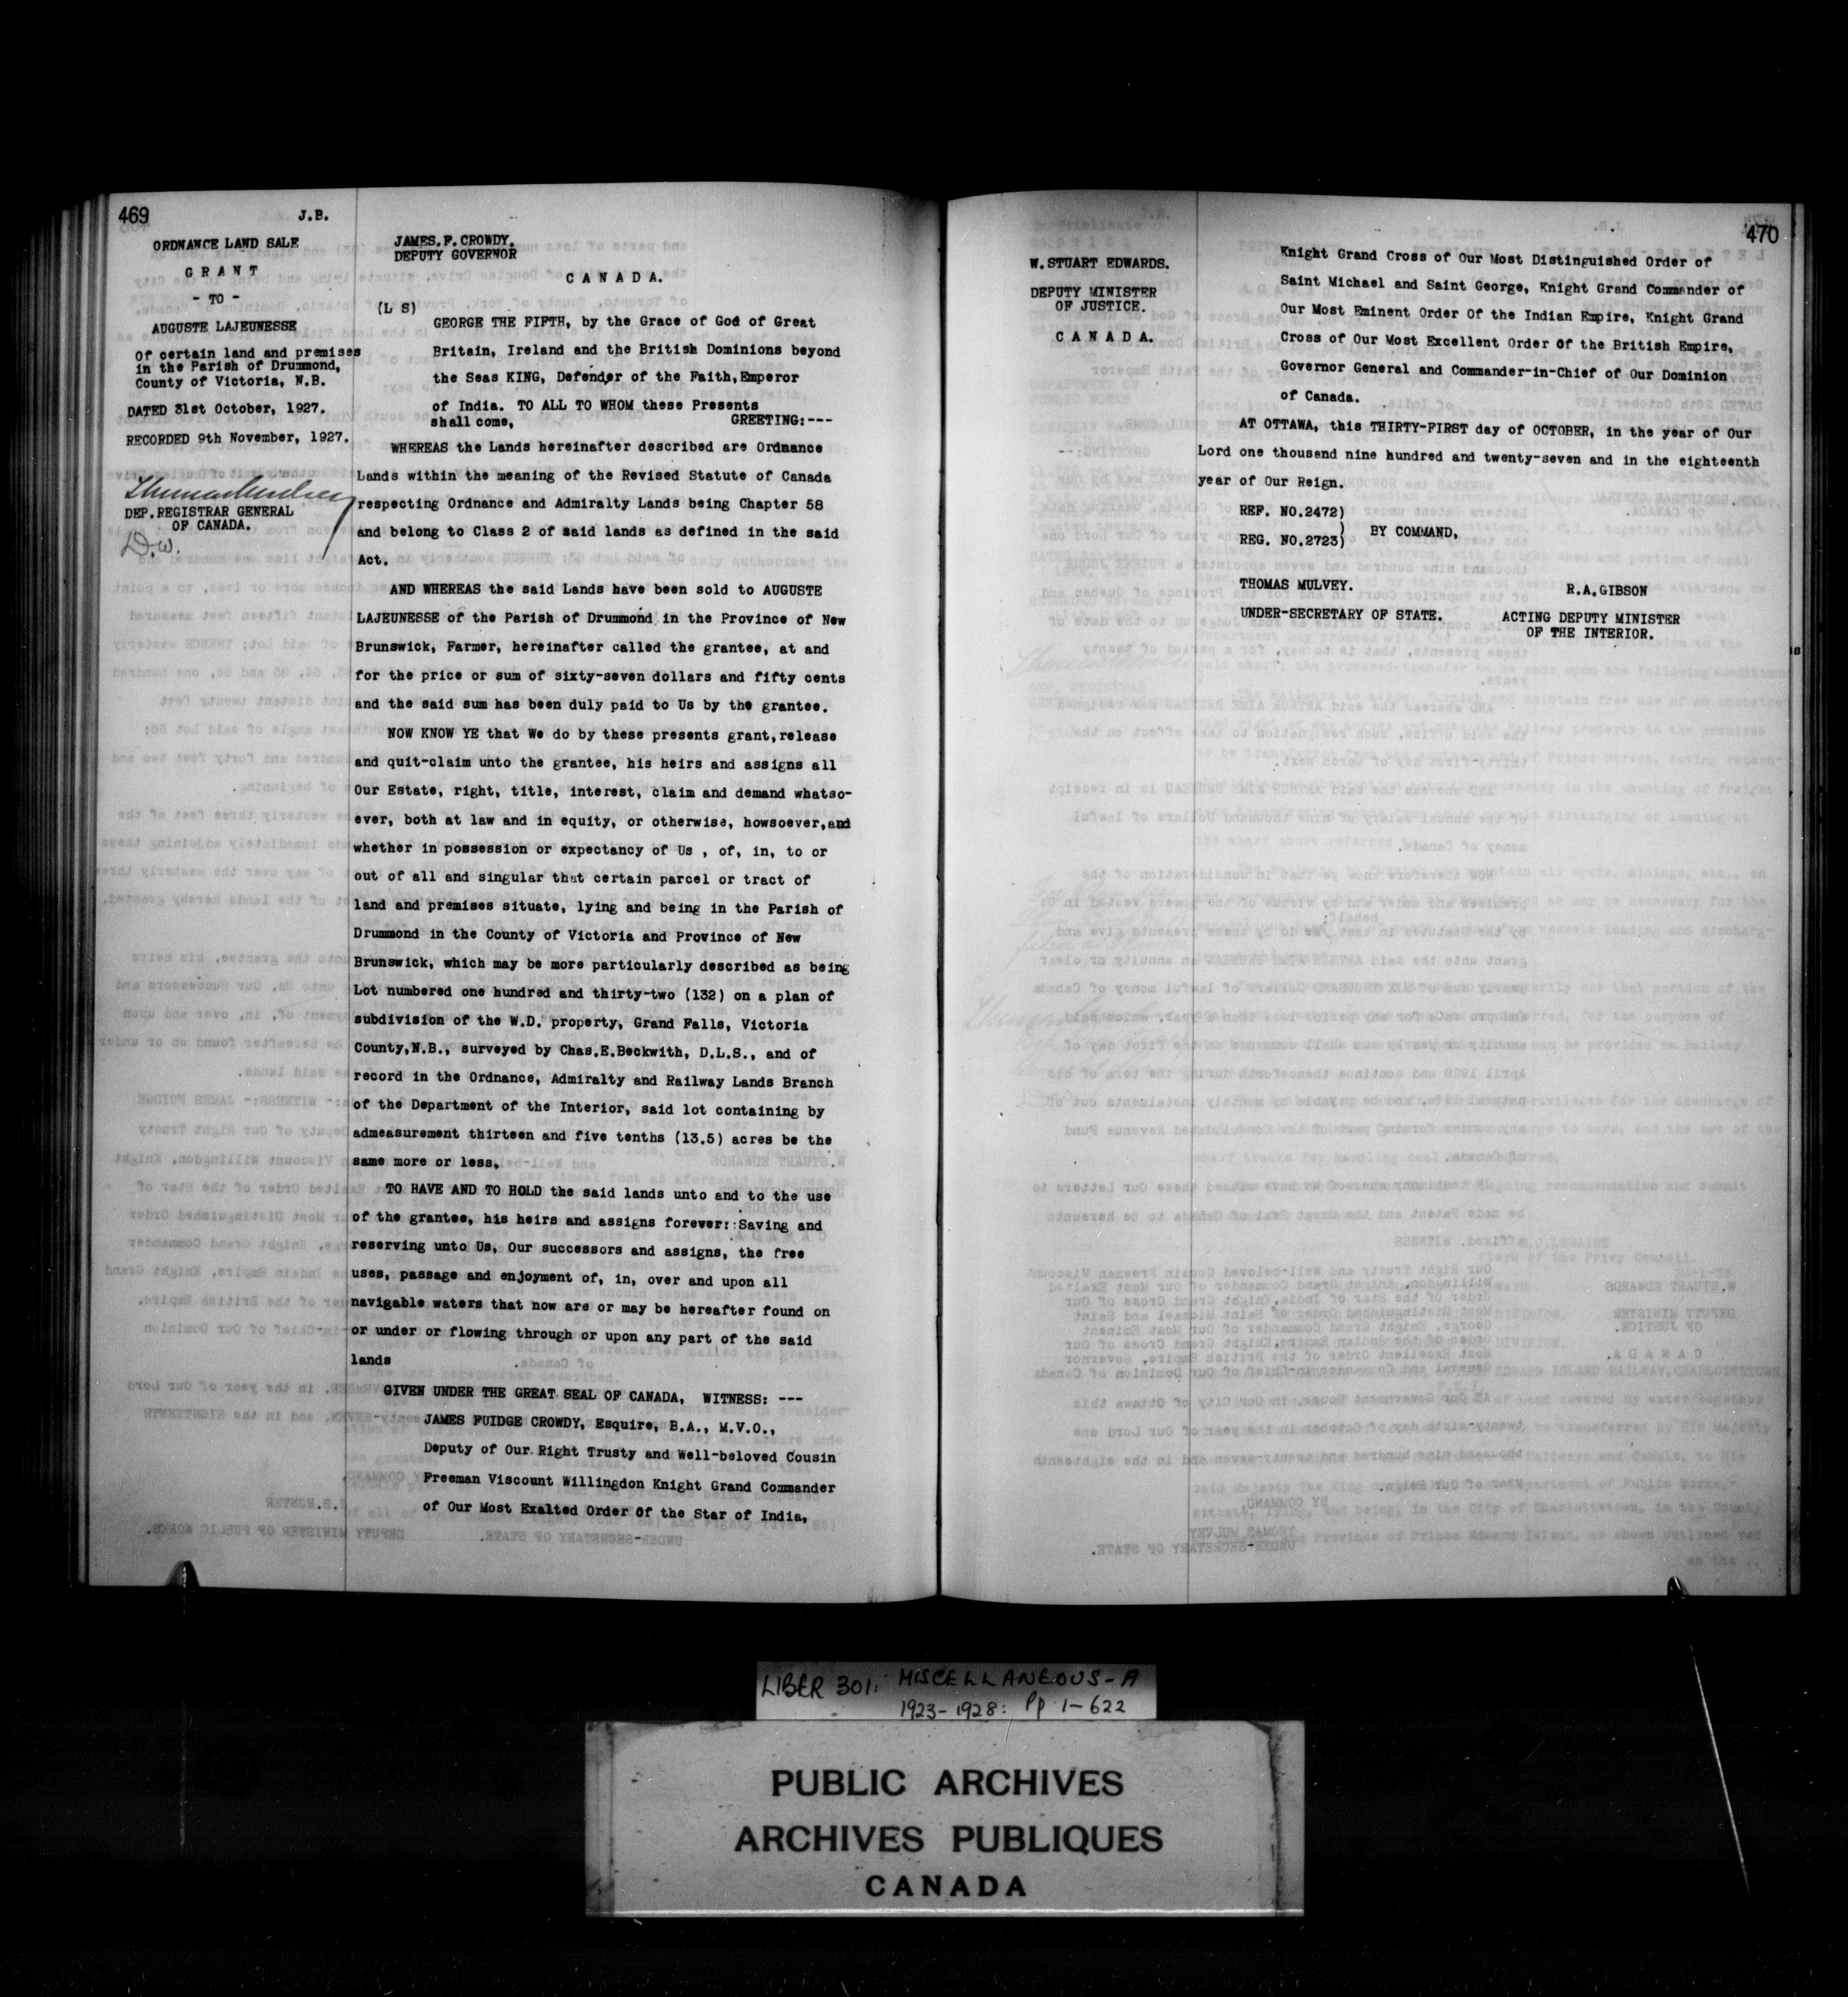 469
J.B.
ORDNANCE LAND SALE
G R A N T
- TO -
AUGUSTE LAJEUNESSE
Of certain land and premises
in the Parish of Drummond,
County of Victoria, N.B.
DATED 31st October, 1927.
RECORDED 9th November, 1927.
DEP.REGISTRAR GENERAL
OF CANADA.
D.W.
JAMES.F.CROWDY.
DEPUTY GOVERNOR
C A N A D A.
(L S)
GEORGE THE FIFTH, by the Grace of God of Great
Britain, Ireland and the British Dominions beyond
the Seas KING, Defender of the Faith,Emperor
of India. TO ALL TO WHOM these Presents
shall come, GREETING:---
WHEREAS the Lands hereinafter described are Ordnance
Lands within the meaning of the Revised Statute of Canada
respecting Ordnance and Admiralty Lands being Chapter 58
and belong to Class 2 of said lands as defined in the said
Act.
AND WHEREAS the said Lands have been sold to AUGUSTE
LAJEUNESSE of the Parish of Drummond in the Province of New
Brunswick, Farmer, hereinafter called the grantee, at and
for the price or sum of sixty-seven dollars and fifty cents
and the said sum has been duly paid to Us by the grantee.
NOW KNOW YE that We do by these presents grant,release
and quit-claim unto the grantee, his heirs and assigns all
Our Estate, right, title, interest, claim and demand whatso-
ever, both at law and in equity, or otherwise, howsoever,and
whether in possession or expectancy of Us , of, in, to or
out of all and singular that certain parcel or tract of
land and premises situate, lying and being in the Parish of
Drummond in the County of Victoria and Province of New
Brunswick, which may be more particularly described as being
Lot numbered one hundred and thirty-two (132) on a plan of
subdivision of the W.D. property, Grand Falls, Victoria
County,N.B., surveyed by Chas.E.Beckwith, D.L.S., and of
record in the Ordnance, Admiralty and Railway Lands Branch
of the Department of the Interior, said lot containing by
admeasurement thirteen and five tenths (13.5) acres be the
same more or less.
TO HAVE AND TO HOLD the said lands unto and to the use
of the grantee, his heirs and assigns forever: Saving and
reserving unto Us, Our successors and assigns, the free
uses, passage and enjoyment of, in, over and upon all
navigable waters that now are or may be hereafter found on
or under or flowing through or upon any part of the said
lands
GIVEN UNDER THE GREAT SEAL OF CANADA, WITNESS: ---
JAMES FUIDGE CROWDY, Esquire, B.A., M.V.O.,
Deputy of Our Right Trusty and Well-beloved Cousin
Freeman Viscount Willingdon Knight Grand Commander
of Our Most Exalted Order Of the Star of India,
470
W.STUART EDWARDS.
DEPUTY MINISTER
OF JUSTICE.
C A N A D A.
Knight Grand Cross of Our Most Distinguished Order of
Saint Michael and Saint George, Knight Grand Commander of
Our Most Eminent Order Of the Indian Empire, Knight Grand
Cross of Our Most Excellent Order Of the British Empire,
Governor General and Commander-in-Chief of Our Dominion
of Canada.
AT OTTAWA, this THIRTY-FIRST day of OCTOBER, in the year of Our
Lord one thousand nine hundred and twenty-seven and in the eighteenth
year of Our Reign.
REF. NO.2472)
)
REG. NO.2723)
BY COMMAND,
THOMAS MULVEY.
UNDER-SECRETARY OF STATE.
R.A.GIBSON
ACTING DEPUTY MINISTER
OF THE INTERIOR.
LIBER 301: MISCELLANEOUS-A
1923-1928: Pp 1-622
PUBLIC ARCHIVES
ARCHIVES PUBLIQUES
CANADA